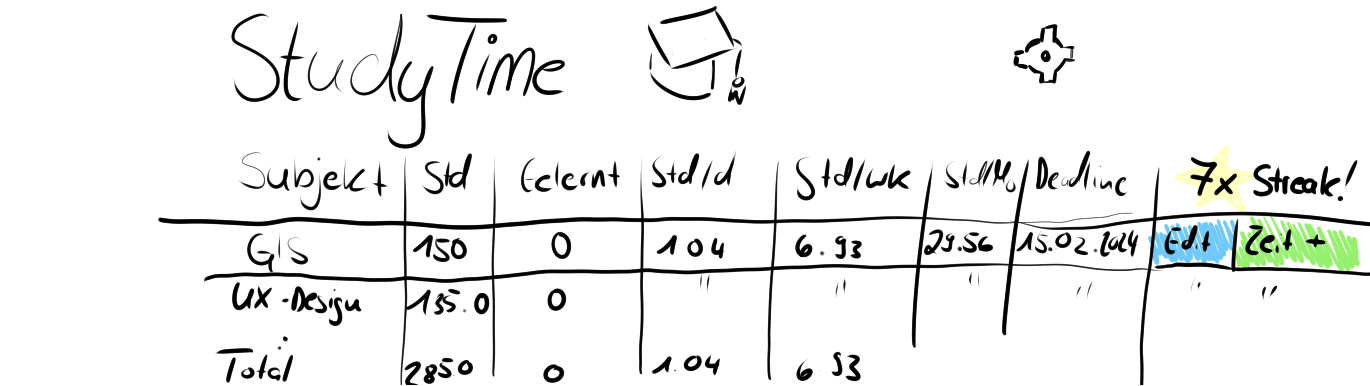 StudyTime
Subjekt Std Gelernt Std/d Std/wk Std/Mo Deadline 7x Streak!
GIS 150 0 1.04 6.93 29.56 15.02.2024 Edit Zeit +
UX-Design 135.0 0 " " " " " "
:
Total 285.0 0 1.04 6.93